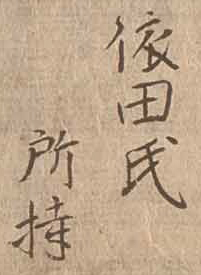 依田氏
所持